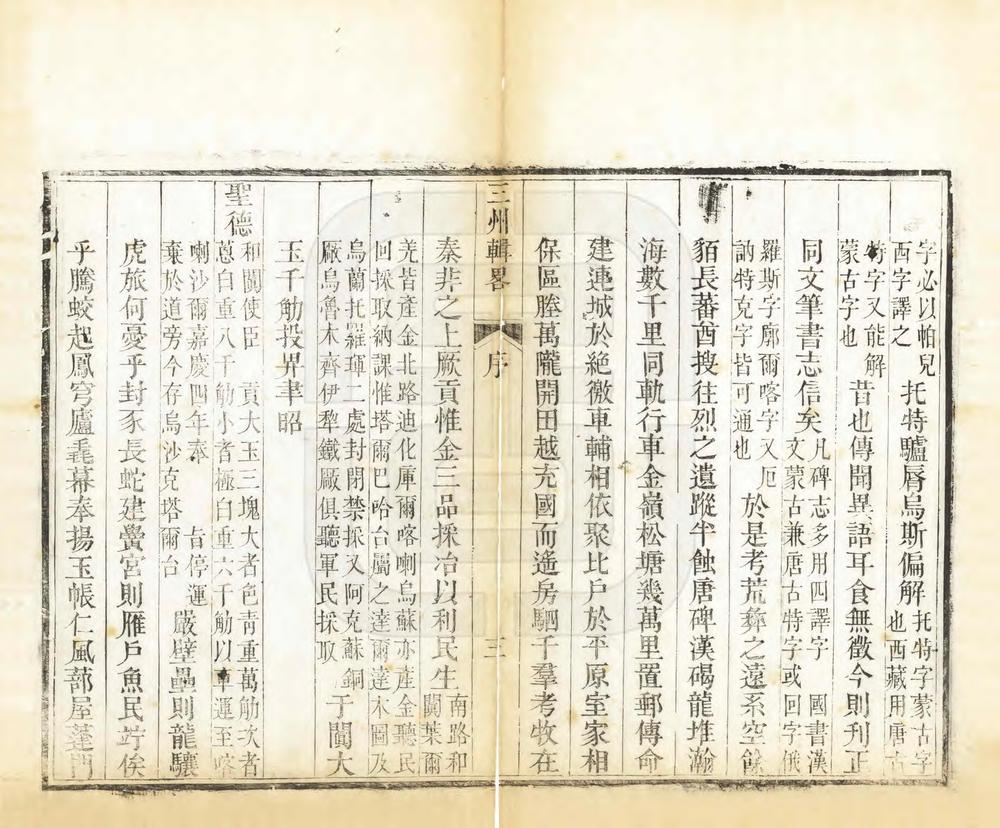 字必以帕兒
西字譯之
托特驢脣烏斯偏解
托特字蒙古字
也西藏用唐古
特字又能解
蒙古字也
昔也傳聞異語耳食無徵今則刊正
同文筆書志信矣
凡碑志多用四譯字 國書漢
文蒙古兼唐古特字或回字俄
羅斯字廓爾喀字又厄
訥特克字皆可通也
於是考荒彝之遠系空餘
貊長蕃酋搜往烈之遺蹤半蝕唐碑漢碣龍堆瀚
海數千里同軌行車金嶺松塘幾萬里置郵傳命
建連城於絶徼車輔相依聚比戶於平原室家相
保區塍萬隴開田越充國而遙房駟千羣考牧在
三州輯畧 序 三
秦非之上厥貢惟金三品採冶以利民生
南路和
闐葉爾
羌皆產金北路迪化庫爾喀喇烏蘇亦產金聽民
回採取納課惟塔爾巴哈台屬之達爾達木圖及
烏蘭托羅琿二處封閉禁採又阿克蘇銅
廠烏魯木齊伊犁鐵廠俱聽軍民採取
于闐大
玉千觔投畀聿昭
聖德
和闐使臣 貢大玉三塊大者色青重萬觔次者
蔥白重八千觔小者極白重六千觔以車運至喀
喇沙爾嘉慶四年奉 旨停運
棄於道旁今存烏沙克塔爾台
嚴壁壘則龍驤
虎旅何憂乎封豕長蛇建黌宮則雁戶魚民竚俟
乎騰蛟起鳳穹廬毳幕奉揚玉帳仁風蔀屋蓬門